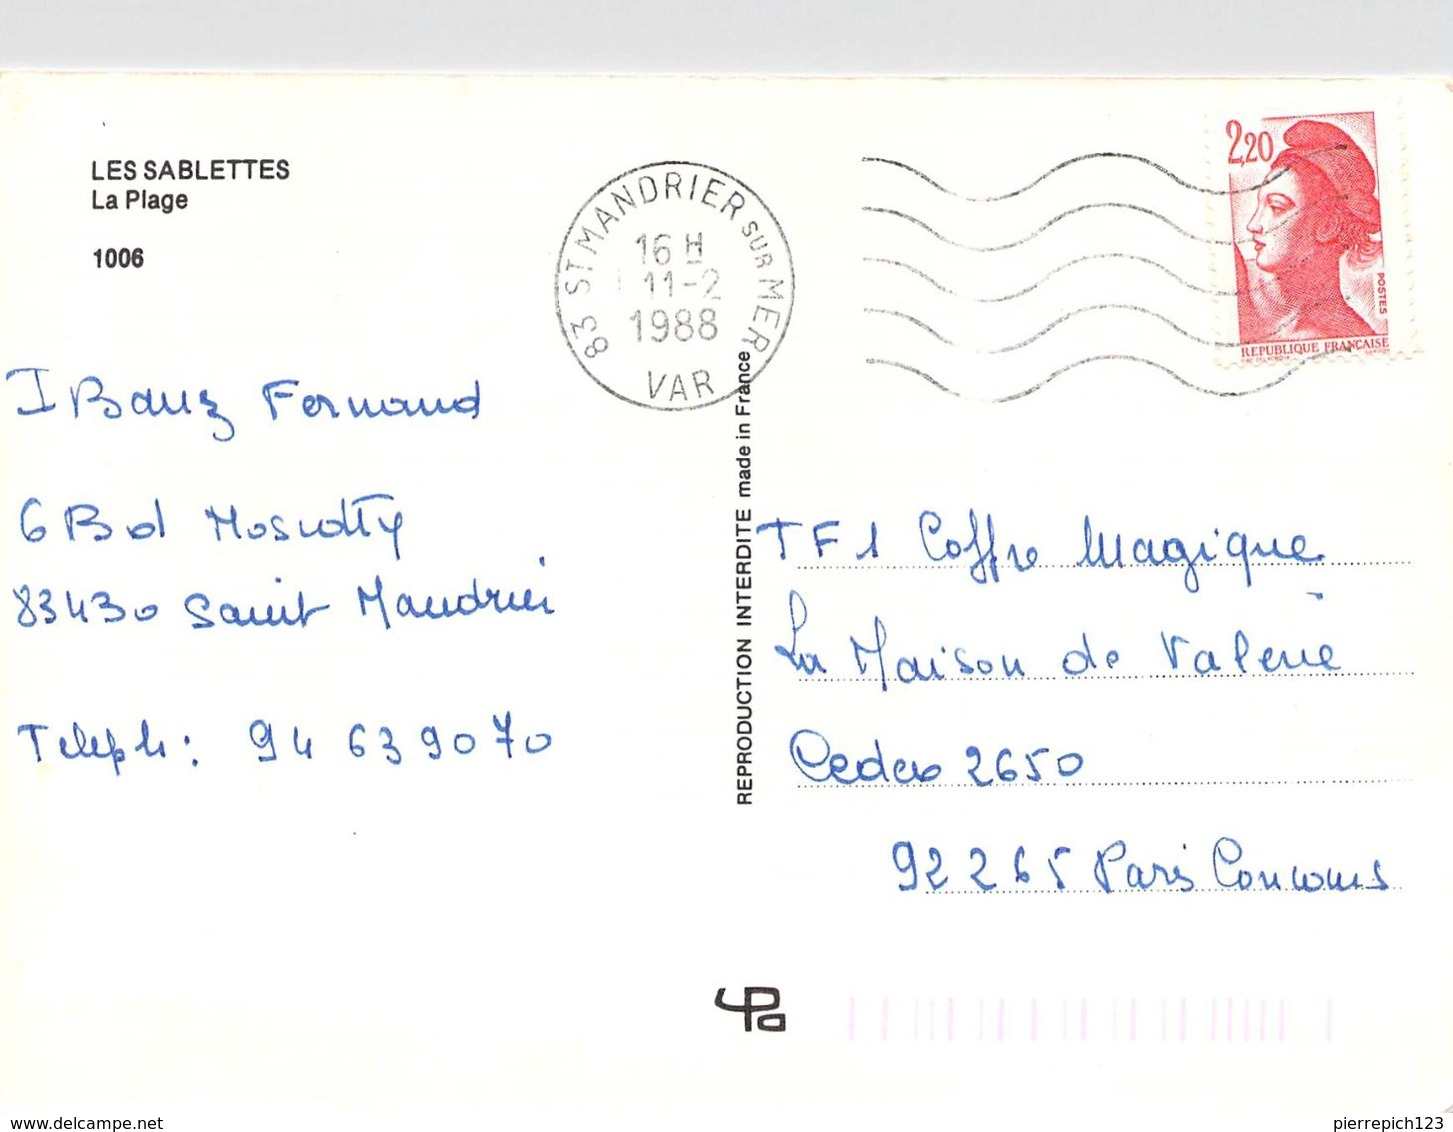 LES SABLETTES
La Plage
1006
83 ST MANDRIER SUR MER
16 H
11-2
1988
VAR
2,20
POSTES
REPUBLIQUE FRANÇAISE
IBanz Fernand
6 Bd
83430 Saint Mandrier
Teleph: 94 639070
REPRODUCTION INTERDITE made in France
TF1 Coffre Magique
La Maison de Valerie
Cedex 2650
92265 Paris Concours
delcampe.net
pierrepich123